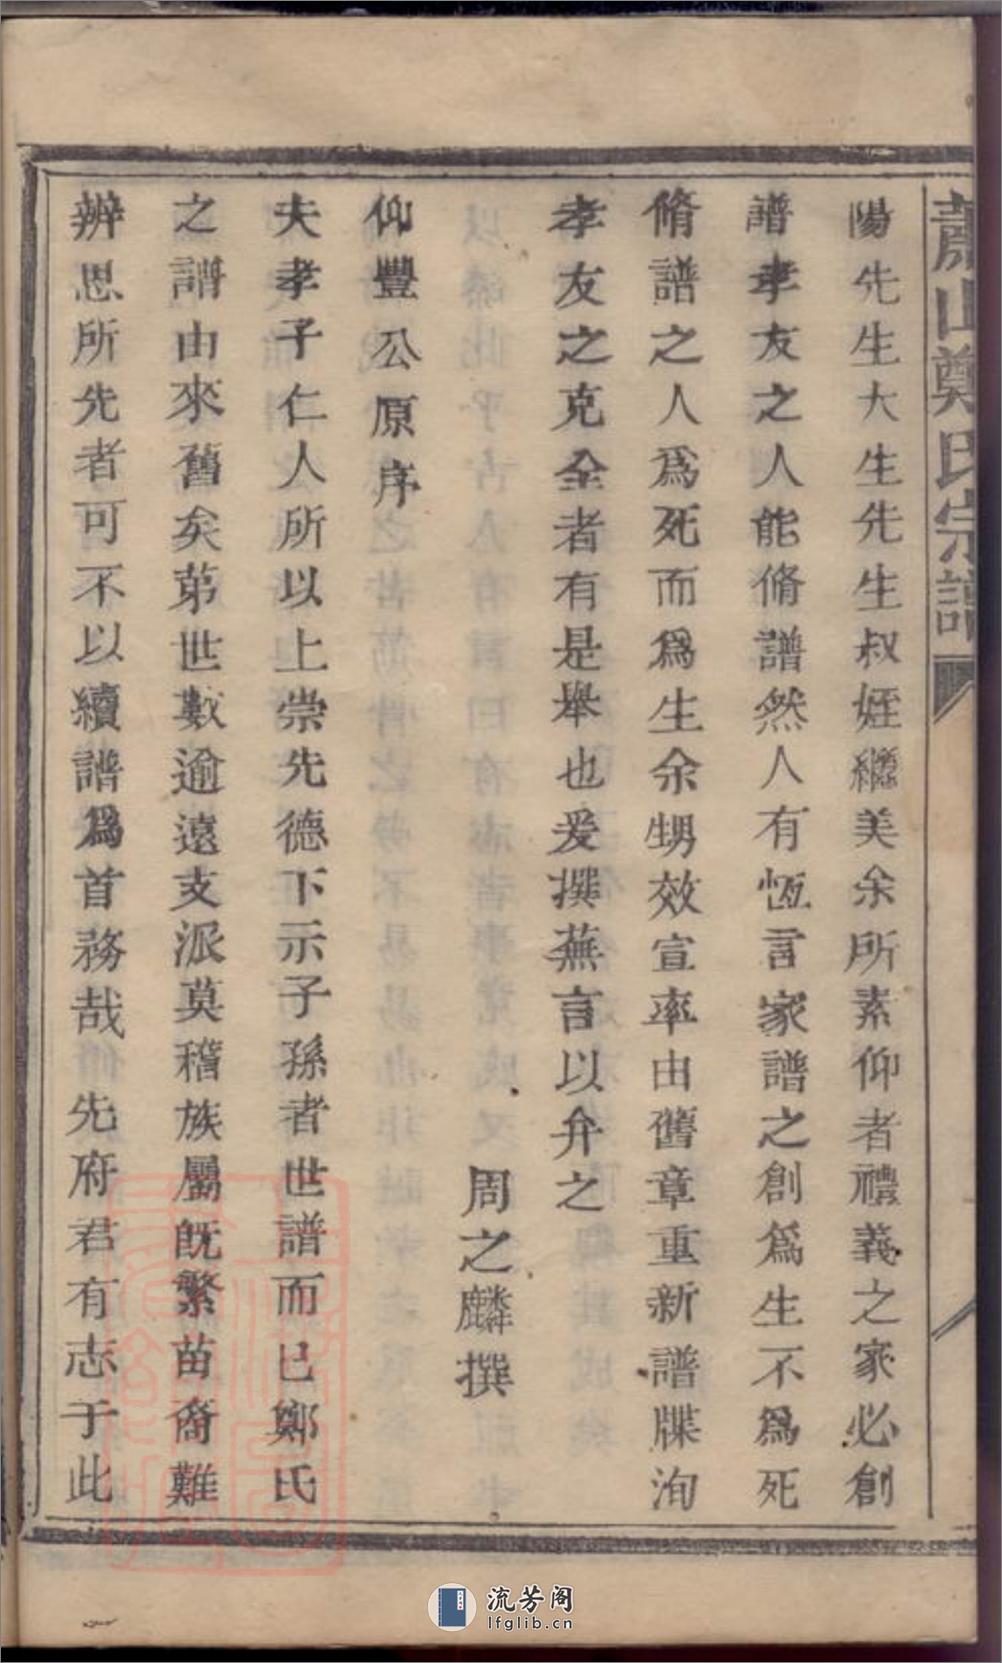 蕭山鄭氏宗譜
陽先生大生先生叔姪繼美余所素仰者禮義之家必創
譜孝友之人能脩譜然人有恆言家譜之創爲生不爲死
脩譜之人爲死而爲生余甥效宣率由舊章重新譜牒洵
孝友之克全者有是舉也爰撰蕪言以弁之
周之麟撰
仰豐公原序
夫孝子仁人所以上崇先德下示子孫者世譜而已鄭氏
之譜由來舊矣苐世數逾遠支派莫稽族屬旣繁苗裔難
辨思所先者可不以續譜爲首務哉 先府君有志于此
流芳阁
lfglib.cn